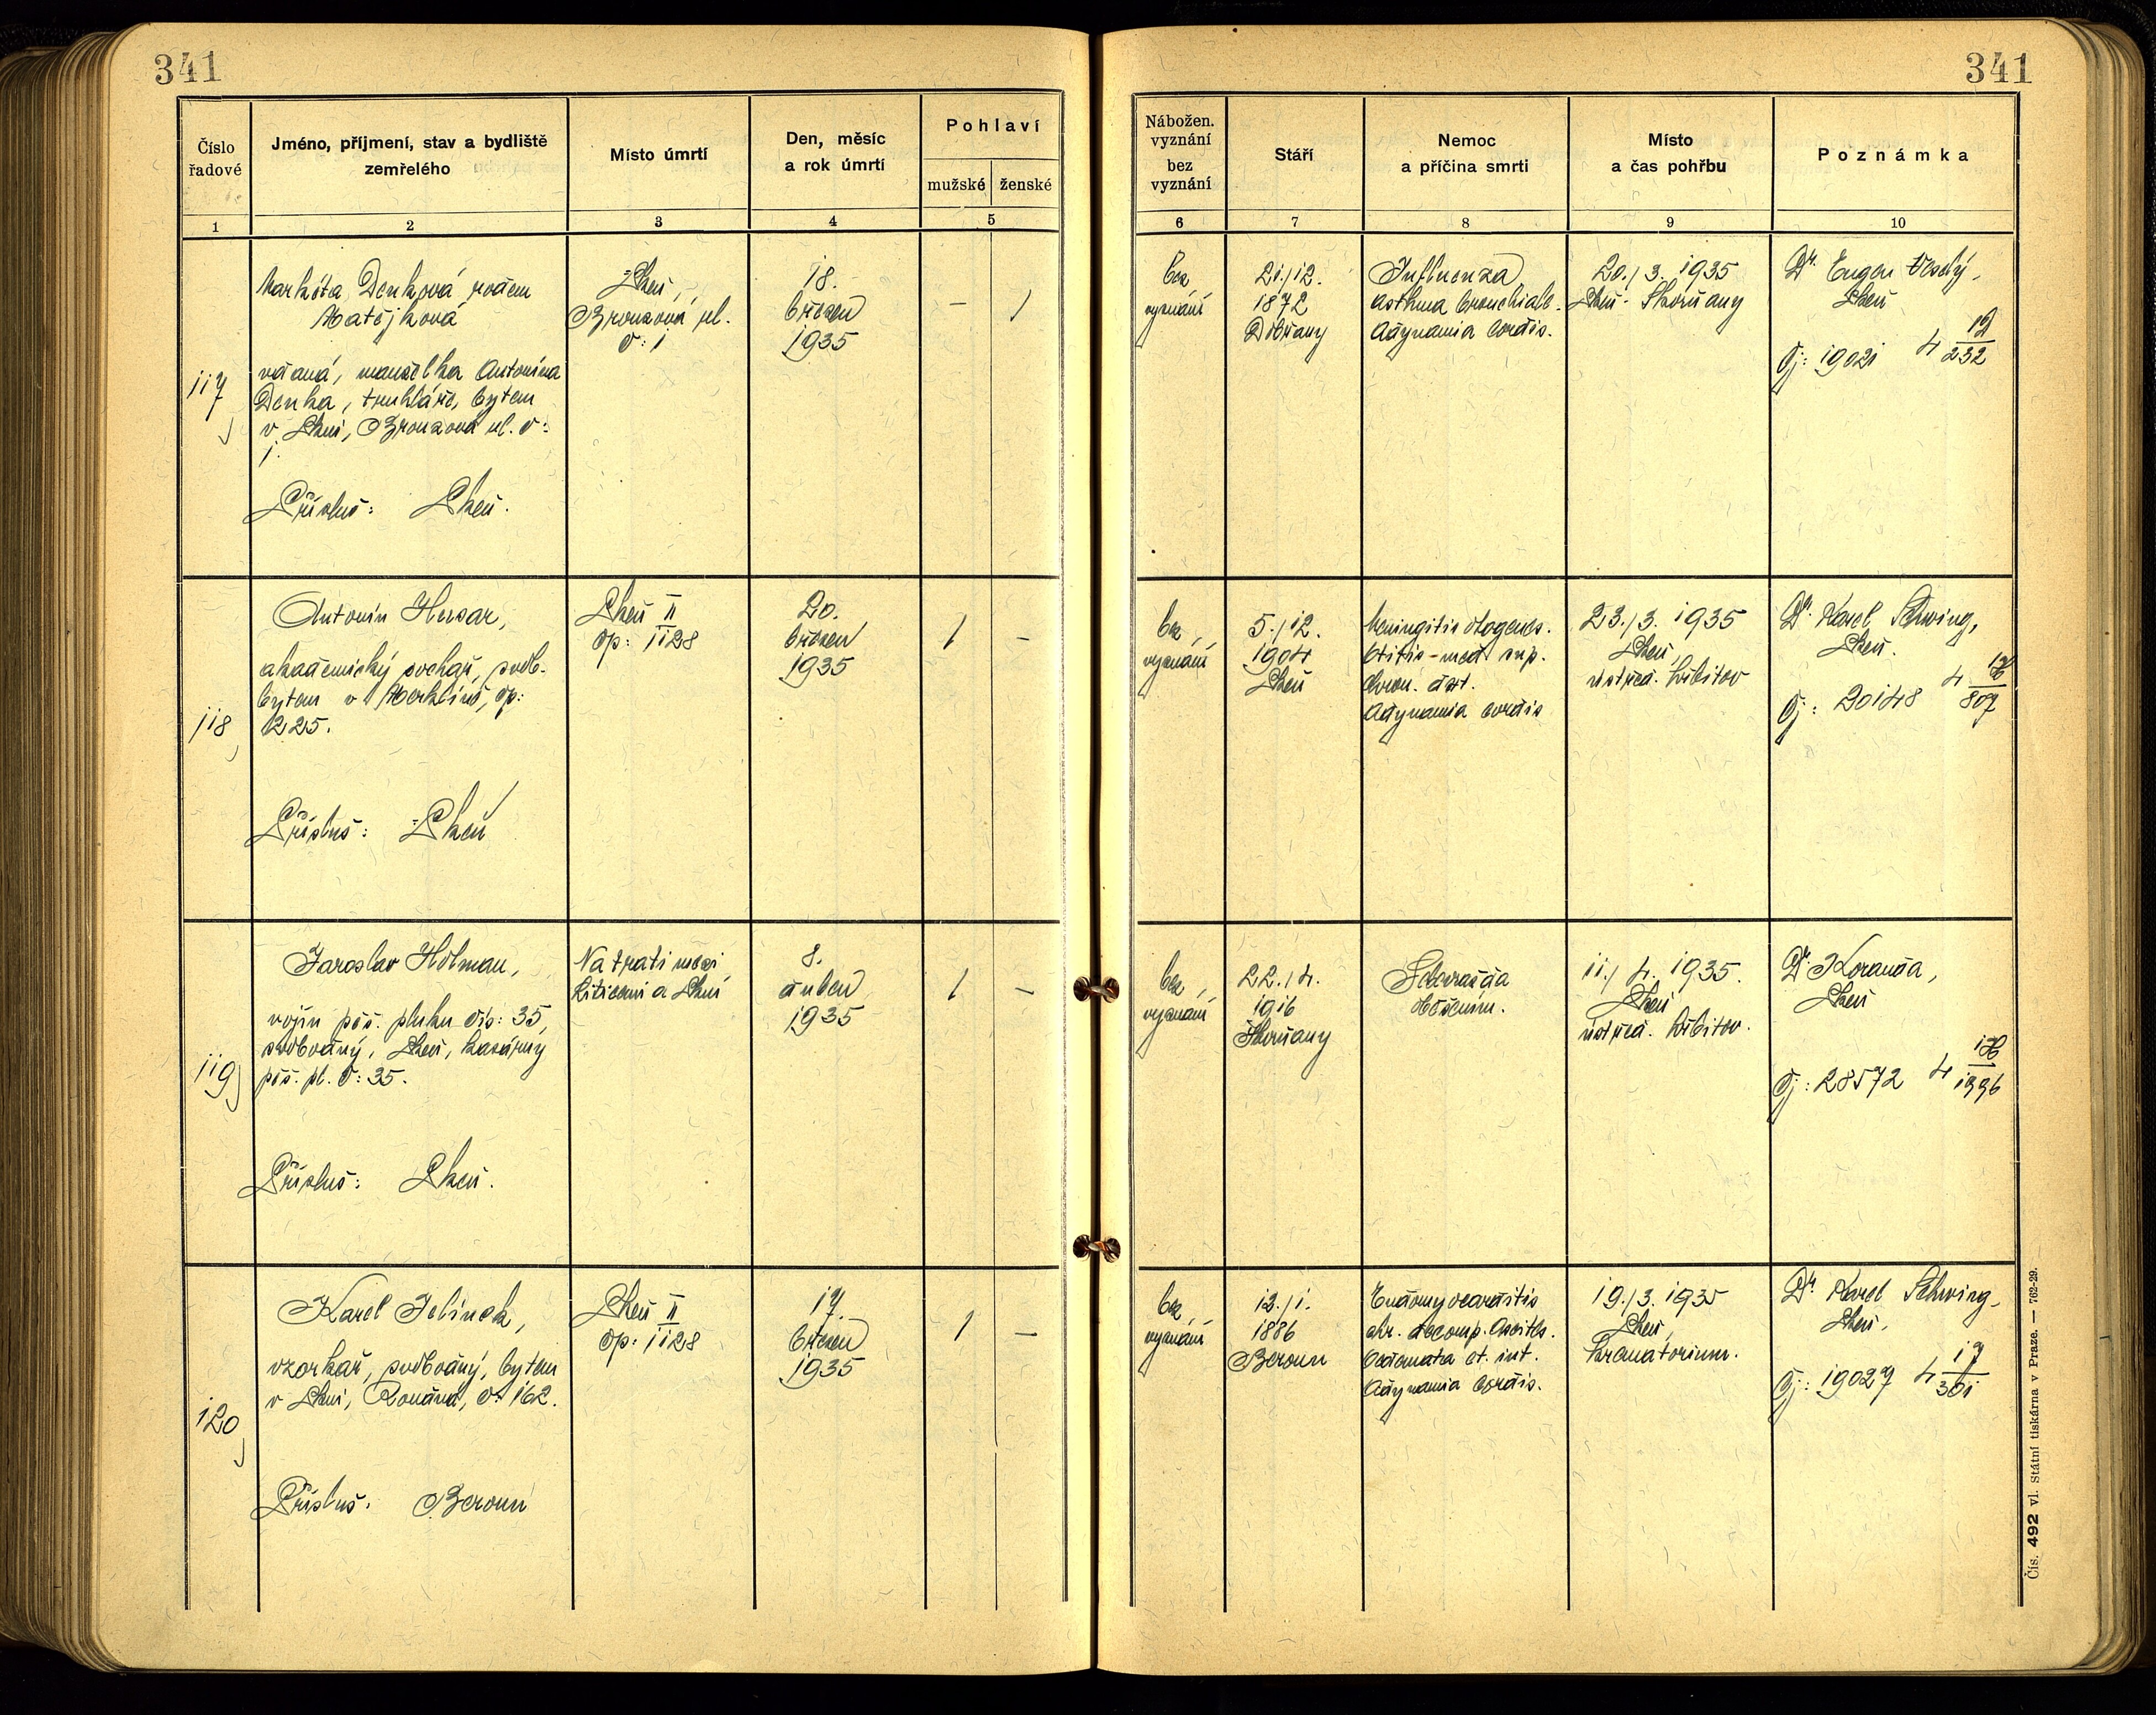 341
341
Číslo
řadové
Jméno, příjmení, stav a bydliště
zemřelého
Místo úmrtí
Den, měsíc
a rok úmrtí
Pohlaví
mužské ženské
1 2 3 4 5
Nábožen.
vyznání
bez
vyznání
Stáří
Nemoc
a příčina smrti
Místo
a čas pohřbu
Poznámka
6 7 8 9 10
117
Markéta Denková rozem
Matějková
vdaná, manželka Antonína
Denka, truhláře, bytem
v Plzni, Bronzová ul. č:
1.
Přísluš: Plzeň.
Plzeň,
Bronzová ul.
č: 1
18.
březen
1935
– 1
bez
vyznání
21./12.
1872
Dobřany
Influenza
asthma bronchiale.
Adynamia cordis.
20./3. 1935
Plzeň-Skvrňany
Dr. Eugen Veselý,
Plzeň
Čj: 19021 4 12/232
118
Antonín Hursar,
akademický sochař, svob.
bytem v Merklíně, čp:
225.
Přísluš: Plzeň
Plzeň II
čp: 1128
20.
březen
1935
1 –
bez
vyznání
5./12.
1904
Plzeň
Meningitis otogenes.
Otitis-med. sup.
chron. dxt.
Adynamia cordis
23./3. 1935
Plzeň,
ústřed. hřbitov
Dr. Karel Schwing,
Plzeň.
Čj: 20148 4 /807
119
Jaroslav Holman,
vojín pěš. pluku čís: 35,
svobodný, Plzeň, kasárny
pěš. pl. č: 35.
Přísluš: Plzeň.
Na trati mezi
Liticemi a Plzní
8.
duben
1935
1 –
bez
vyznání
22./4.
1916
Skvrňany
Sebevražda
11./4. 1935.
Plzeň
ústřed. hřbitov.
Dr. Koranda,
Plzeň
Čj: 28572 4
120
Karel Jelínek,
vzorkař, svobodný, bytem
v Plzni, Roudná, č: 162.
Přísluš: Beroun
Plzeň II
čp: 1128
17.
březen
1935
1 –
bez
vyznání
12./1.
1886
Beroun
Endomyocarditis
chr. decomp. Ascites.
Oedemata et. int.
Adynamia cordis.
19./3. 1935
Plzeň,
krematorium.
Dr. Karel Schwing,
Plzeň.
Čj: 19027 4 17/301
Čís. 492 vl. Státní tiskárna v Praze. — 762-29.